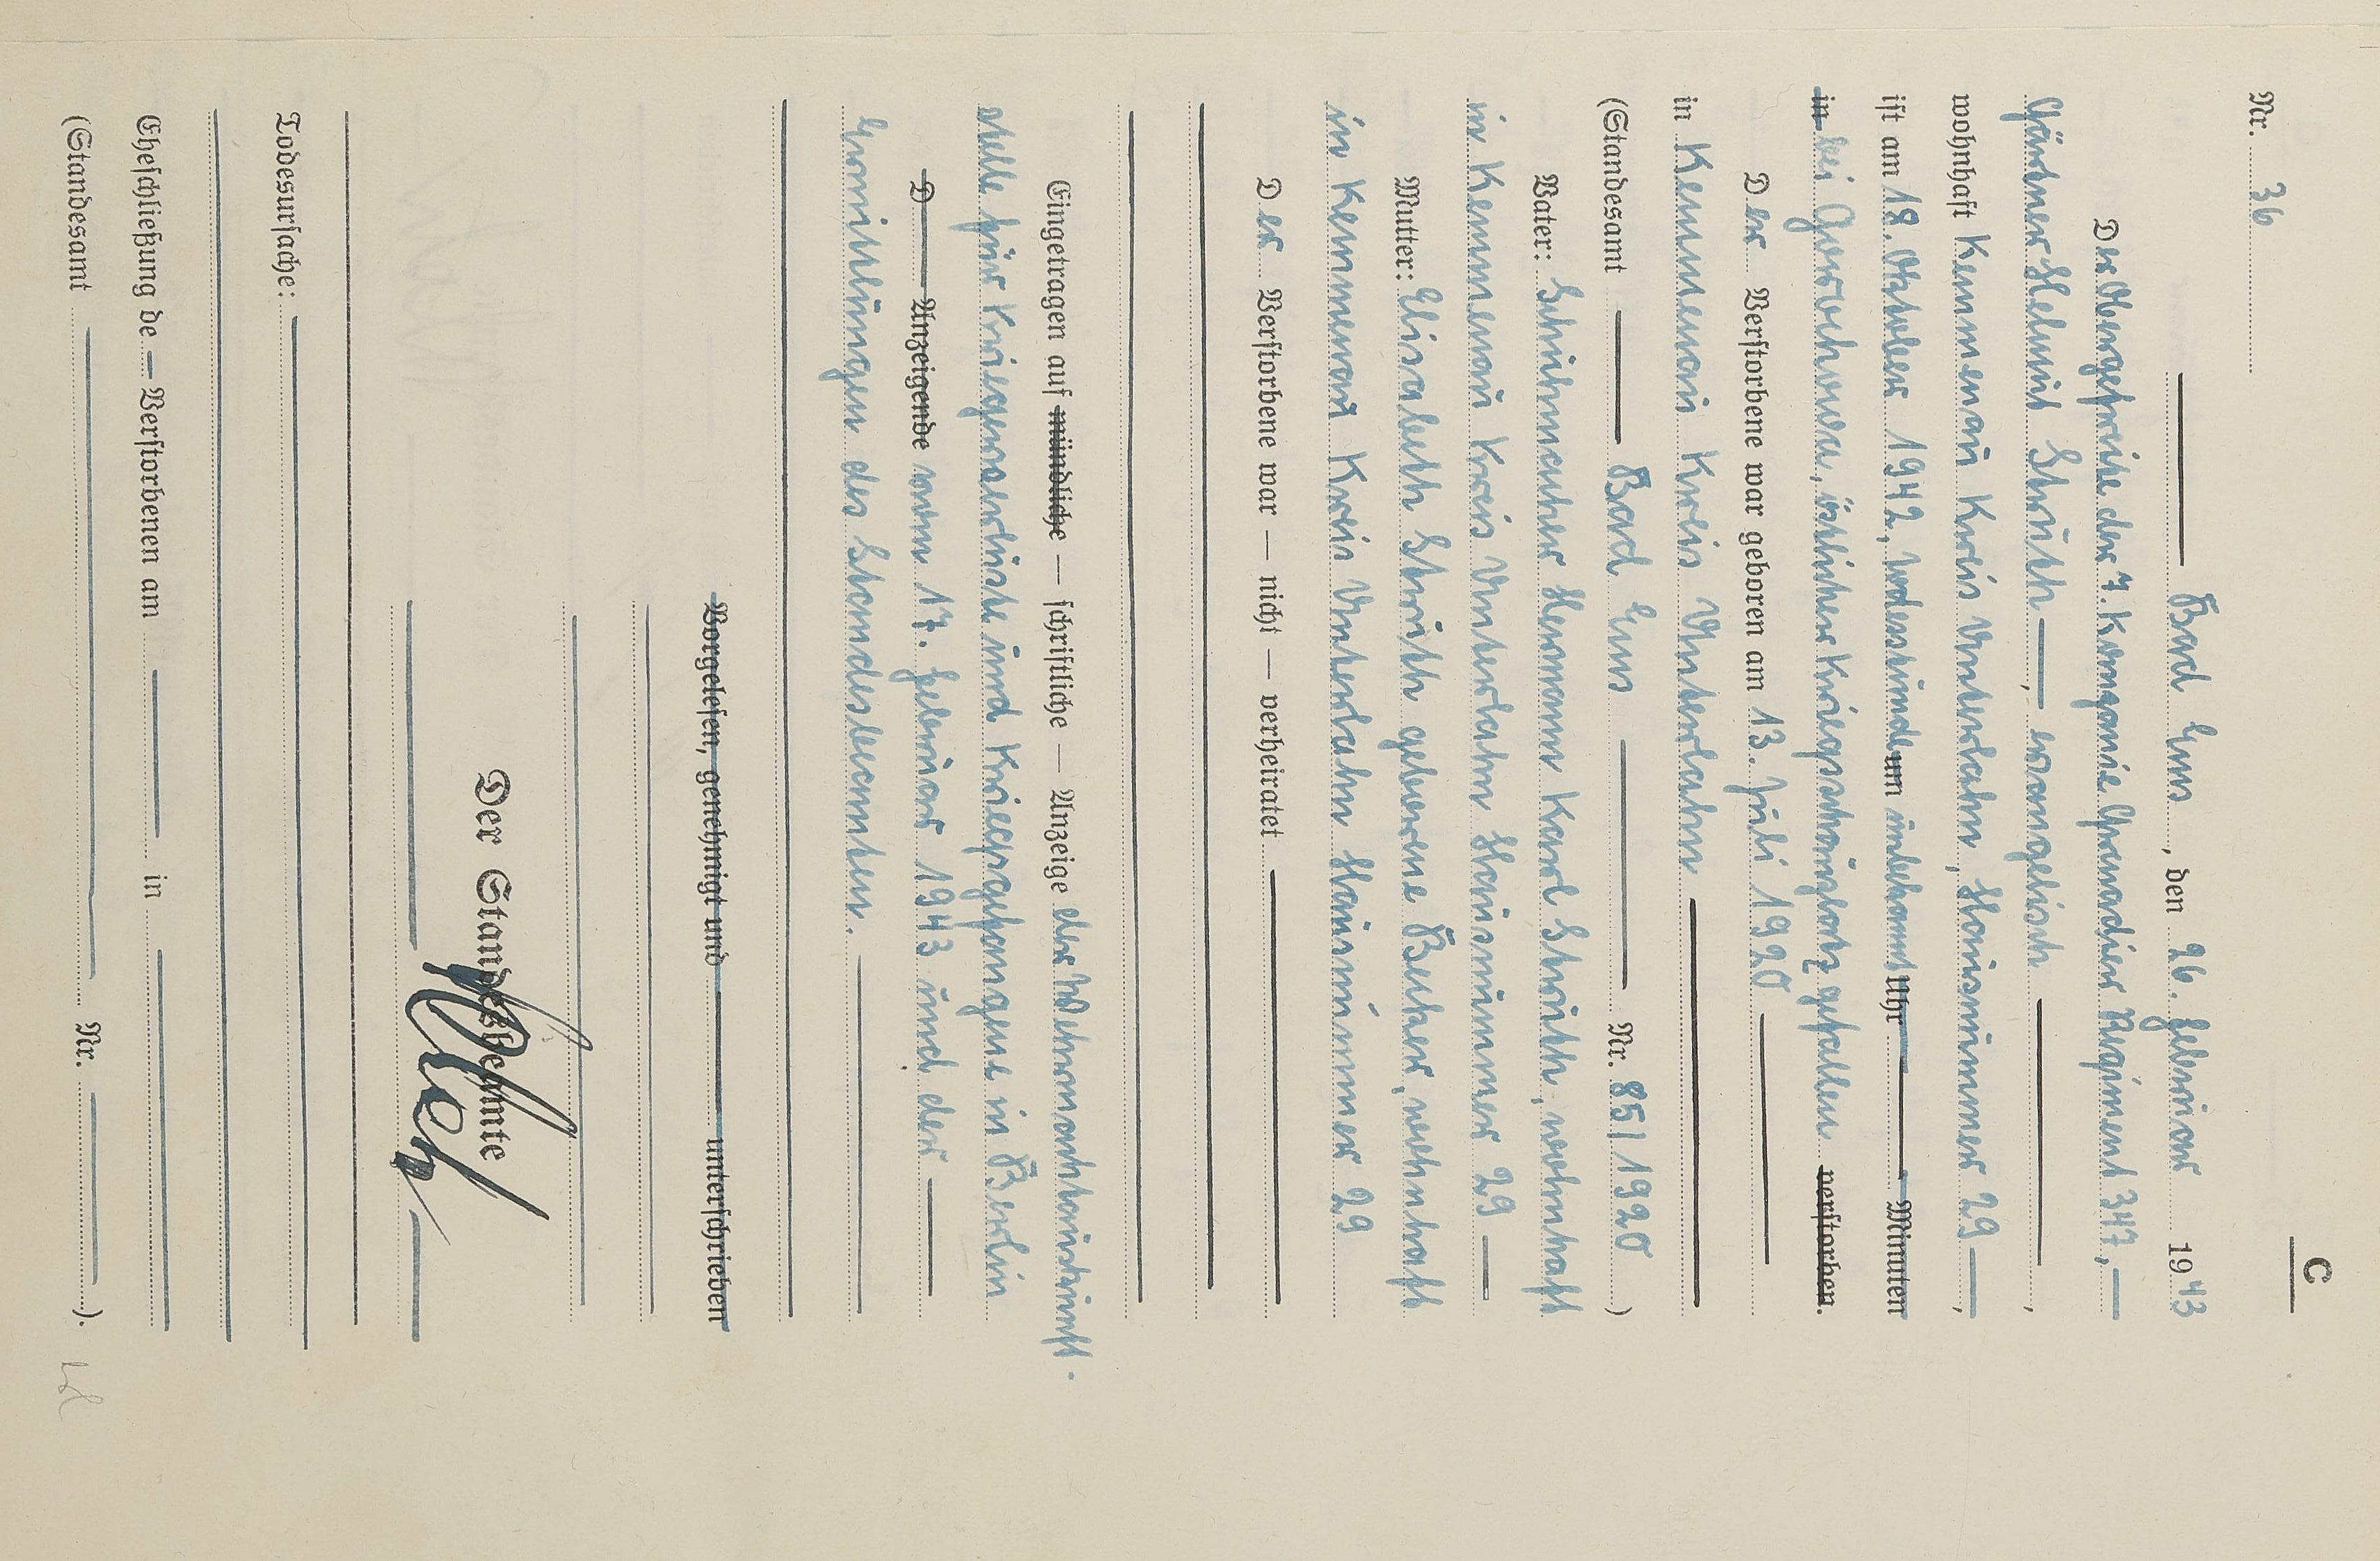 C
Nr. 36
Bad Ems, den 26. Februar 1943
Der Obergefreite der 7. Kompanie Grenadier Regiment 347,
Gärtner Helmut Strüth, evangelisch,
wohnhaft Kemmenau Kreis Unterlahn, Hausnummer 29,
ist am 18. Oktober 1942, Todesstunde um unbekannt Uhr Minuten
in bei Gorochowa, östlicher Kriegsschauplatz gefallen verstorben.
Der Verstorbene war geboren am 13. Juli 1920
in Kemmenau Kreis Unterlahn
(Standesamt Bad Ems Nr. 85/1920)
Vater: Schuhmacher Hermann Karl Strüth, wohnhaft
in Kemmenau Kreis Unterlahn Hausnummer 29
Mutter: Elisabeth Strüth geborene Becker, wohnhaft
in Kemmenau Kreis Unterlahn Hausnummer 29
Der Verstorbene war — nicht — verheiratet
Eingetragen auf mündliche — schriftliche — Anzeige der Wehrmachtauskunft-
stelle für Kriegerverluste und Kriegsgefangene in Berlin
D Anzeigende vom 17. Februar 1943 und der
Ermittlungen des Standesbeamten.
Vorgelesen, genehmigt und unterschrieben
Der Standesbeamte
Todesursache:
Eheschließung de Verstorbenen am in
(Standesamt Nr. ).